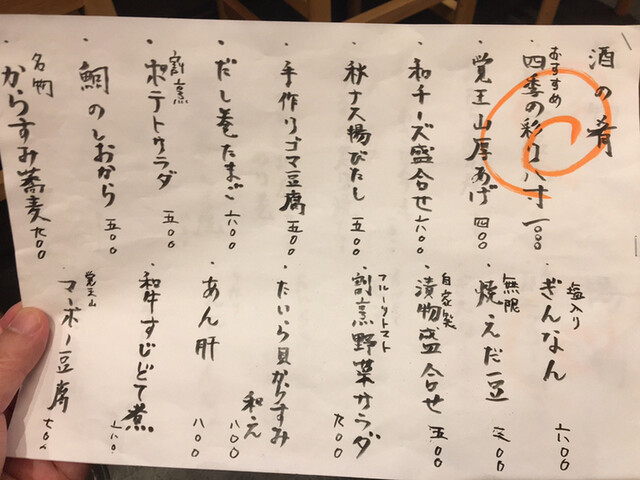 酒の肴
おすすめ
四季の彩り八寸 一、〇〇〇
・覚王山厚あげ 四〇〇
・和チーズ盛合せ 六〇〇
・秋ナス揚びたし 五〇〇
・手作りゴマ豆腐 五〇〇
・だし巻たまご 六〇〇
割烹
・ポテトサラダ 五〇〇
・鯛のしおから 五〇〇
名物
・からすみ蕎麦 七〇〇
塩入り
・ぎんなん 六〇〇
無限
・焼えだ豆
自家製
・漬物盛合せ 五〇〇
フルーツトマト
・割烹野菜サラダ 七〇〇
・たいら貝からすみ
和え 八〇〇
・あん肝 八〇〇
・和牛すじどて煮
覚王山
・マーボー豆腐 七〇〇